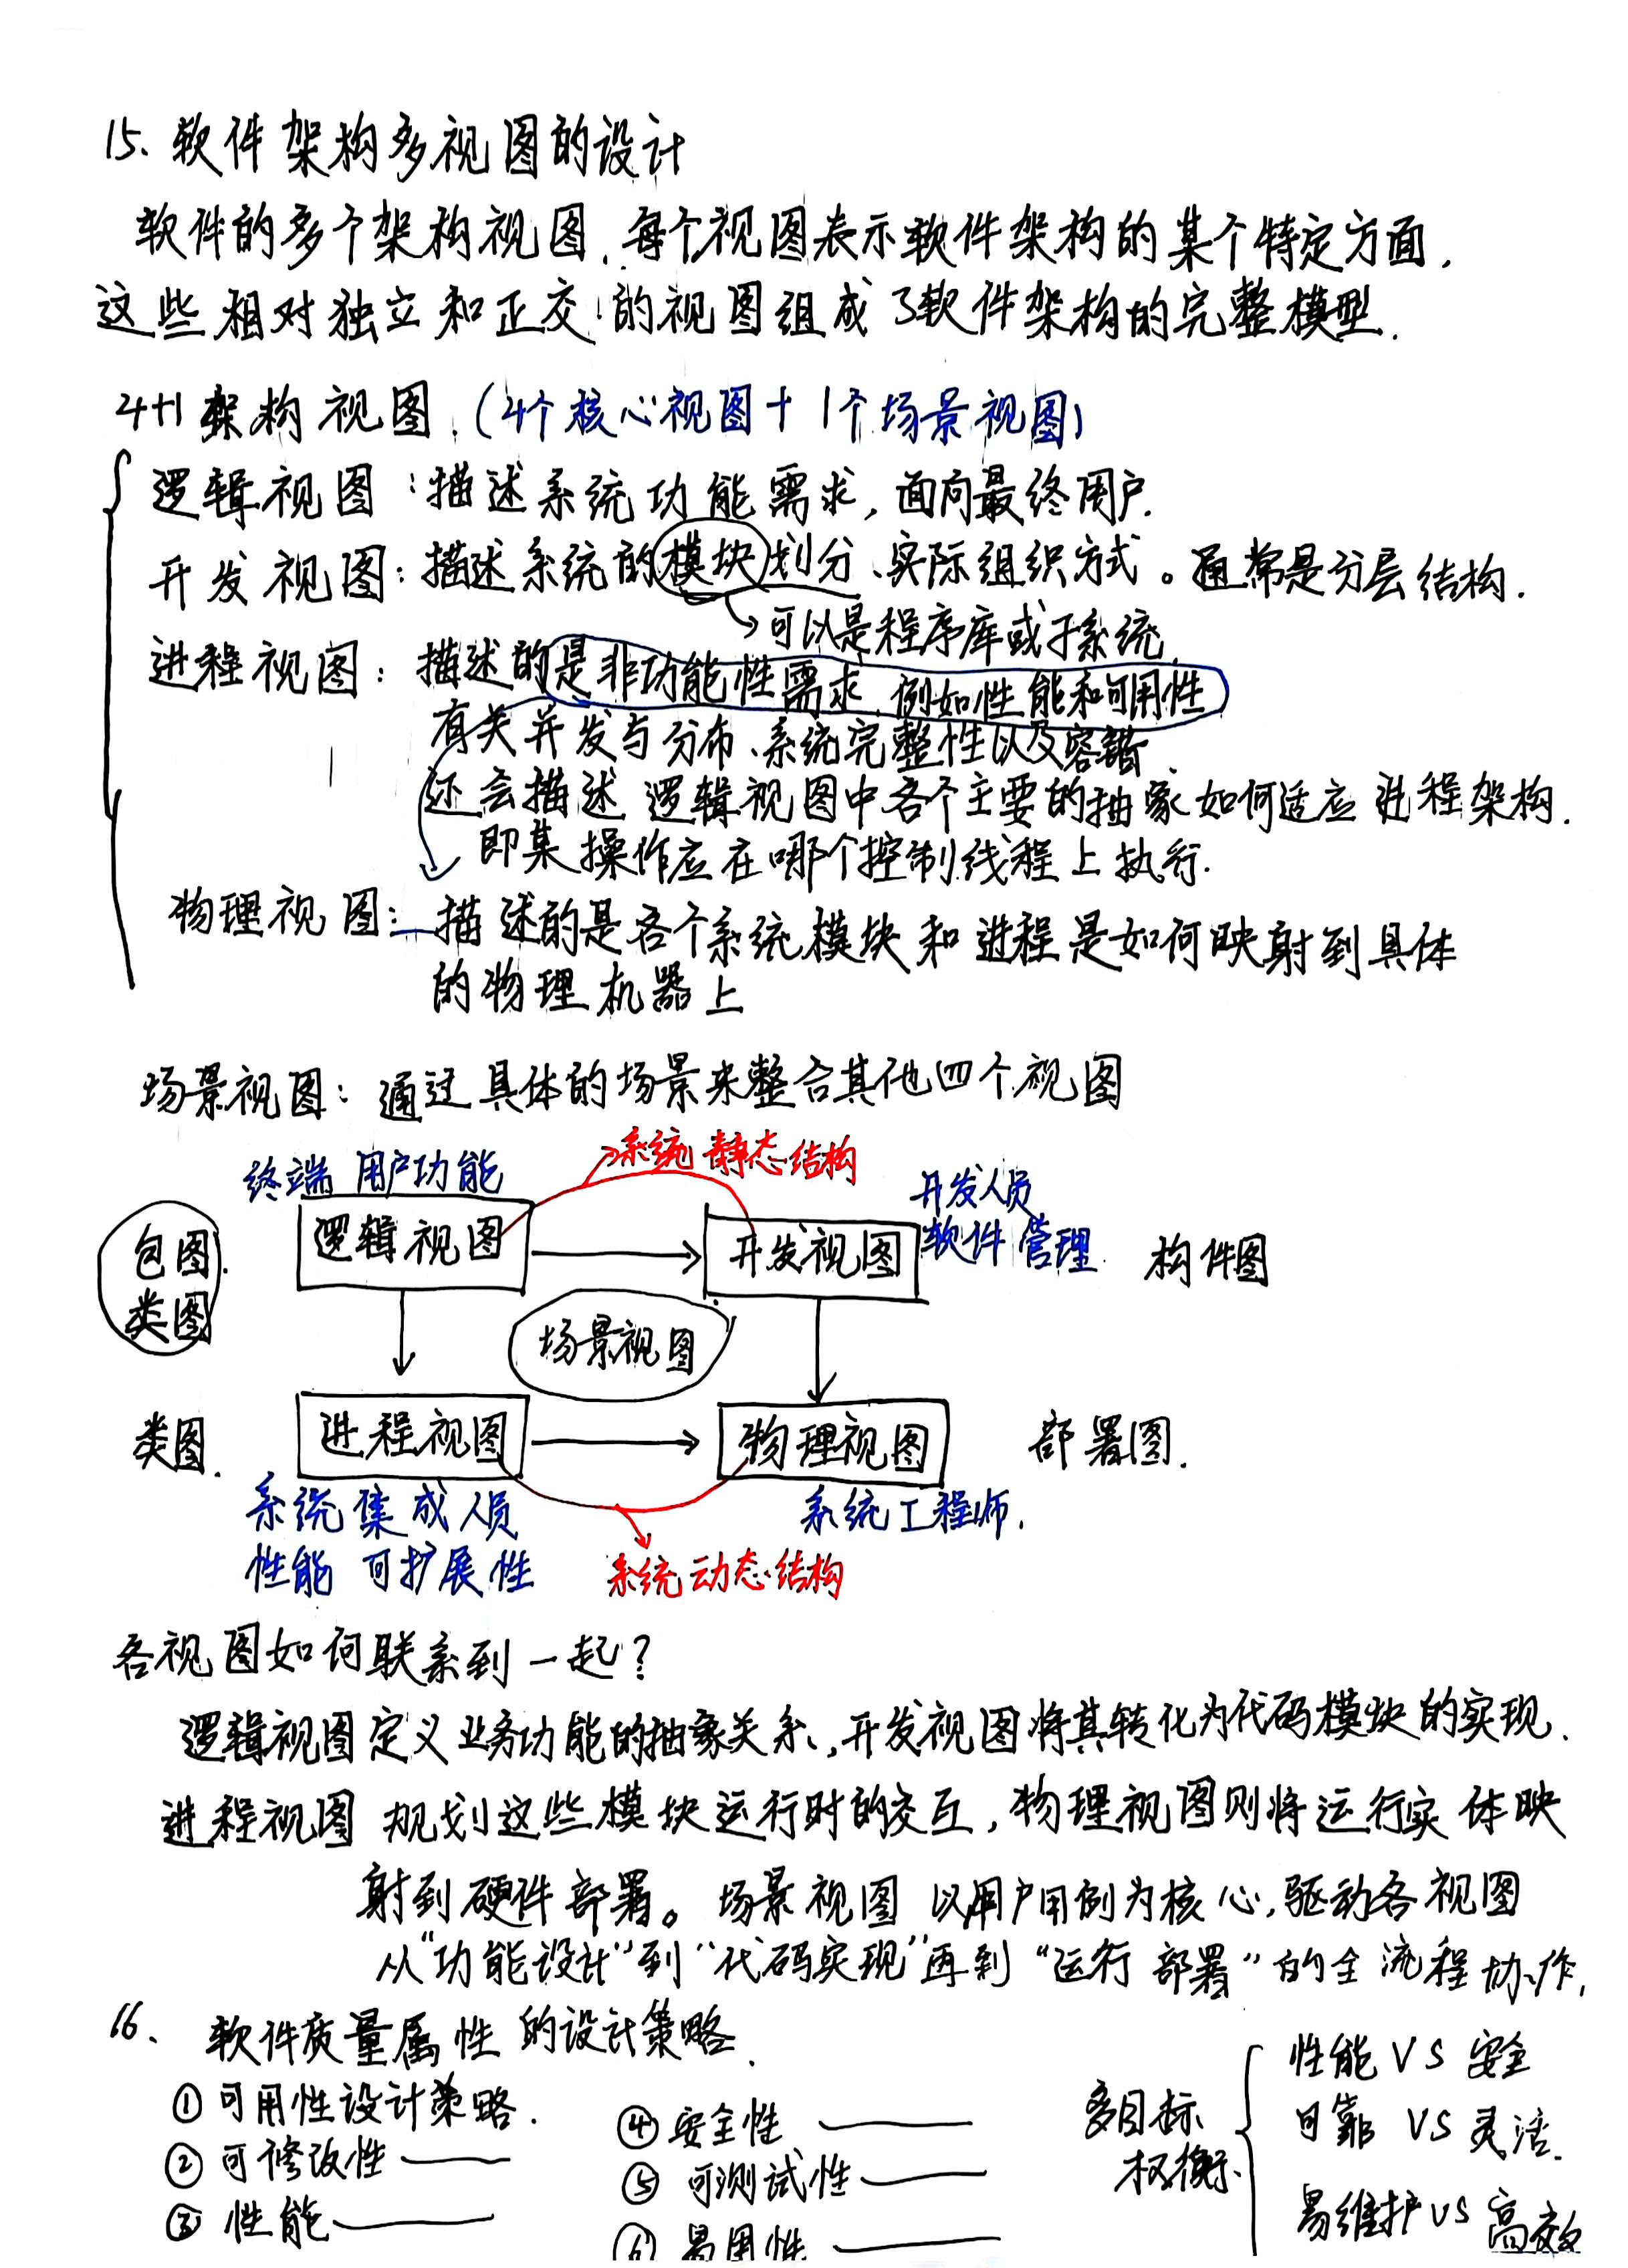 15、软件架构多视图的设计
软件的多个架构视图,每个视图表示软件架构的某个特定方面,
这些相对独立和正交的视图组成了软件架构的完整模型.
4+1架构视图.(4个核心视图+1个场景视图)
逻辑视图:描述系统功能需求,面向最终用户.
开发视图:描述系统的模块划分、实际组织方式。通常是分层结构.
可以是程序库或子系统.
进程视图:描述的是非功能性需求,例如性能和可用性
有关并发与分布、系统完整性以及容错.
还会描述逻辑视图中各个主要的抽象如何适应进程架构.
即某操作应在哪个控制线程上执行.
物理视图:描述的是各个系统模块和进程是如何映射到具体
的物理机器上
场景视图:通过具体的场景来整合其他四个视图
系统静态结构
终端用户功能
开发人员
软件管理.
包图.
类图
逻辑视图
开发视图
构件图
场景视图
类图.
进程视图
物理视图
部署图.
系统集成人员
性能 可扩展性
系统工程师.
系统动态结构
各视图如何联系到一起?
逻辑视图定义业务功能的抽象关系,开发视图将其转化为代码模块的实现.
进程视图规划这些模块运行时的交互,物理视图则将运行实体映
射到硬件部署。场景视图以用户用例为核心,驱动各视图
从“功能设计”到“代码实现”再到“运行部署”的全流程协作.
16、软件质量属性的设计策略.
①可用性设计策略.
②可修改性——
③性能——
④安全性——
⑤可测试性——
⑥易用性——
多目标
权衡.
性能 VS 安全
可靠 VS 灵活.
易维护 VS 高效